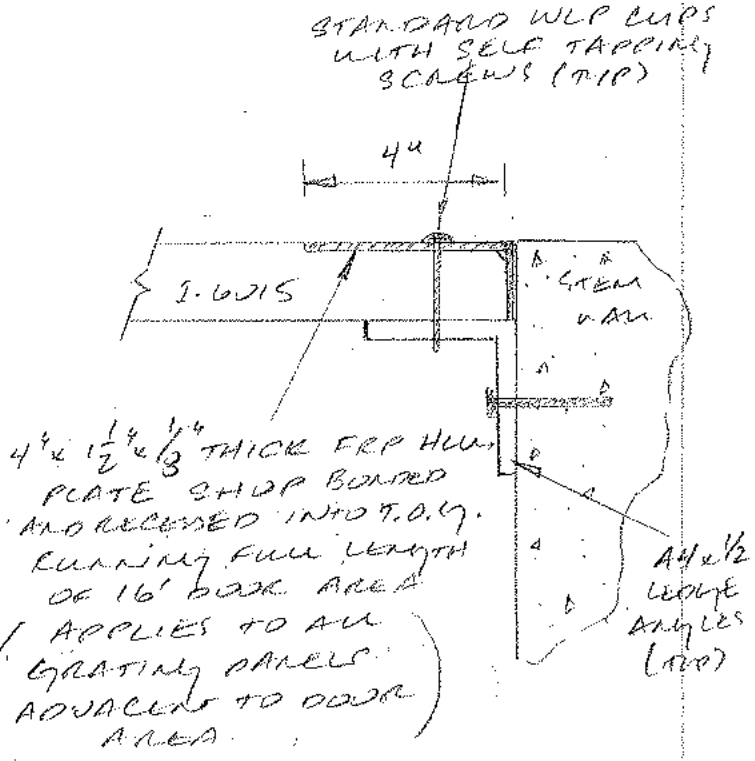 STANDARD WLP CLIPS
WITH SELF TAPPING
SCREWS (TYP)
4"
I-6015
STEM
WALL
4" x 1 1/2" x 1/8" THICK FRP
PLATE SHOP BONDED
AND RECESSED INTO T.O.G.
RUNNING FULL LENGTH
OF 16' DOOR AREA
(APPLIES TO ALL
GRATING PANELS
ADJACENT TO DOOR
AREA.)
A4 x 1/2
LEDGE
ANGLES
(TYP)